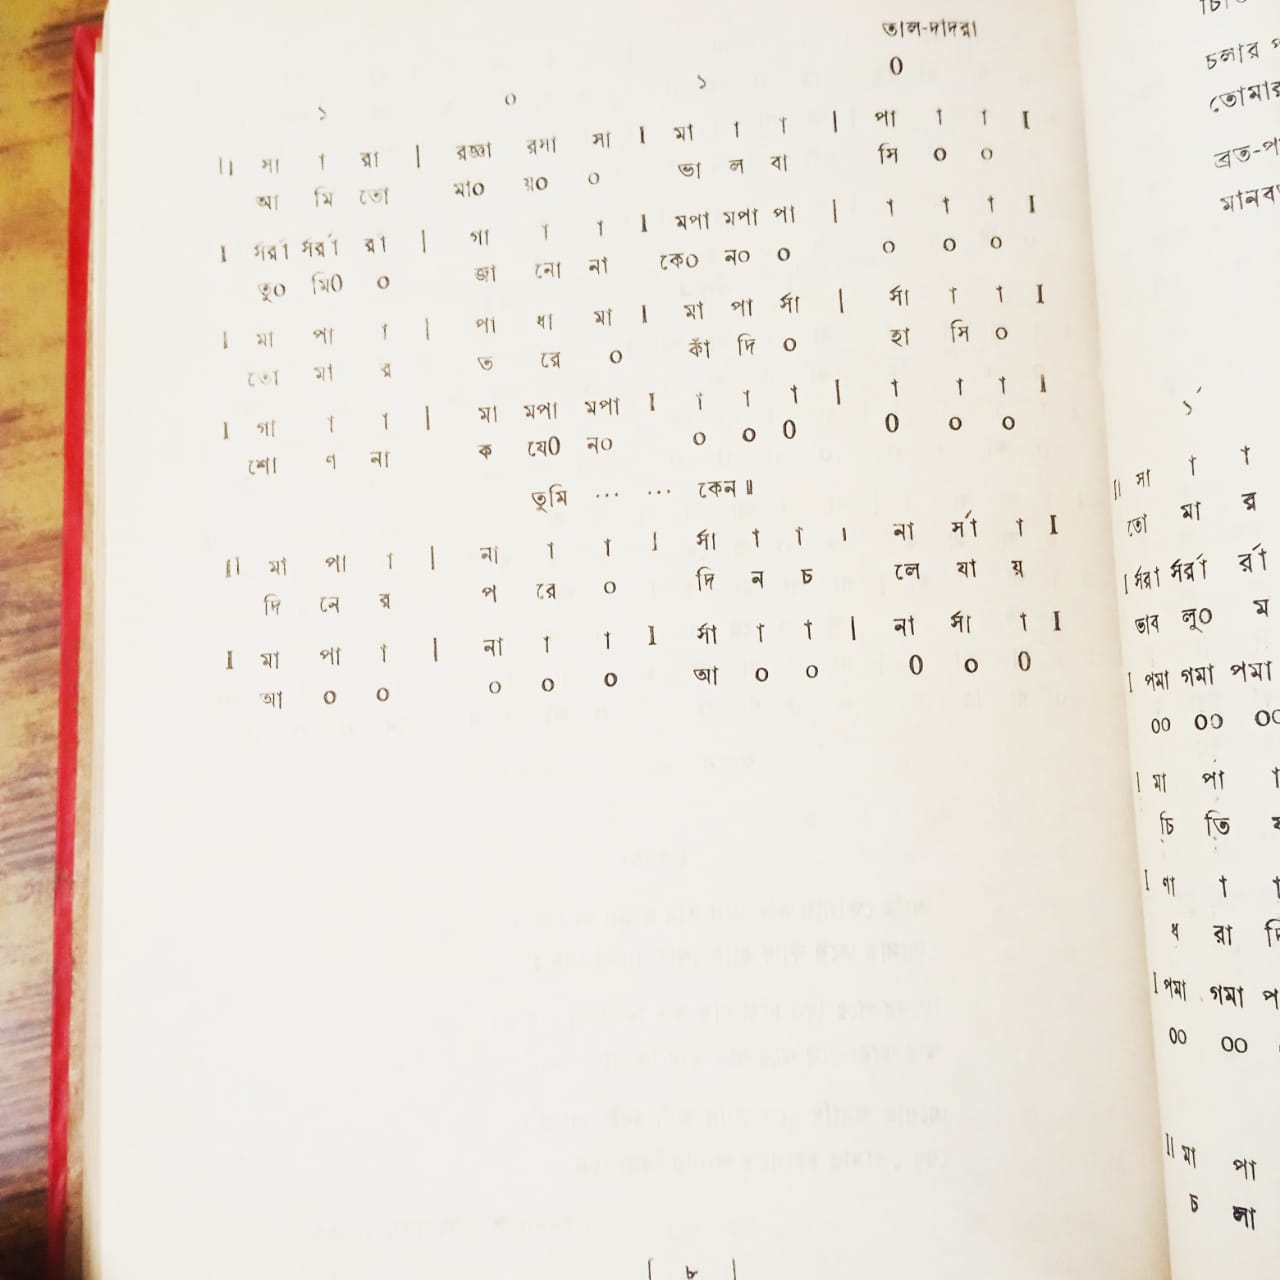 তাল-দাদরা
১ ০ ১ ০
|| সা া রা | রজ্ঞা রসা সা I মা া া | পা া া I
আ মি তো মা০ য়০ ০ ভা ল বা সি ০ ০
I র্সরা র্সর্রা র্রা | গা া া I মপা মপা পা | া া া I
তু০ মি০ ০ জা নো না কে০ ন০ ০ ০ ০ ০
I মা পা া | পা ধা মা I মা পা র্সা | র্সা া া I
তো মা র ত রে ০ কাঁ দি ০ হা সি ০
I গা া া | মা মপা মপা I া া া | া া া I
শো ণ না ক যে০ ন০ ০ ০ ০ ০ ০ ০
তুমি ... ... কেন ॥
|| মা পা া | না া া I র্সা া া । না র্সা া I
দি নে র প রে ০ দি ন চ লে যা য়
I মা পা া | না া া I র্সা া া | না র্সা া I
আ ০ ০ ০ ০ ০ আ ০ ০ ০ ০ ০
চলার
তোমার
ব্রত-প
মানব
১´
|| সা া া
তো মা র
I র্সরা র্সর্রা র্রা
ভাব লু০ ম
I পমা গমা পমা
০০ ০০ ০০
| মা পা া
চি ঠি
I ণা া া
ধ রা দি
I পমা গমা প
০০ ০০
|| মা পা
চ লা